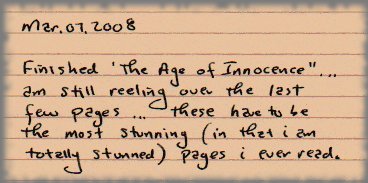 Mar.07.2008
Finished 'The Age of Innocence"...
am still reeling over the last
few pages ... these have to be
the most stunning (in that i am
totally stunned) pages i ever read.